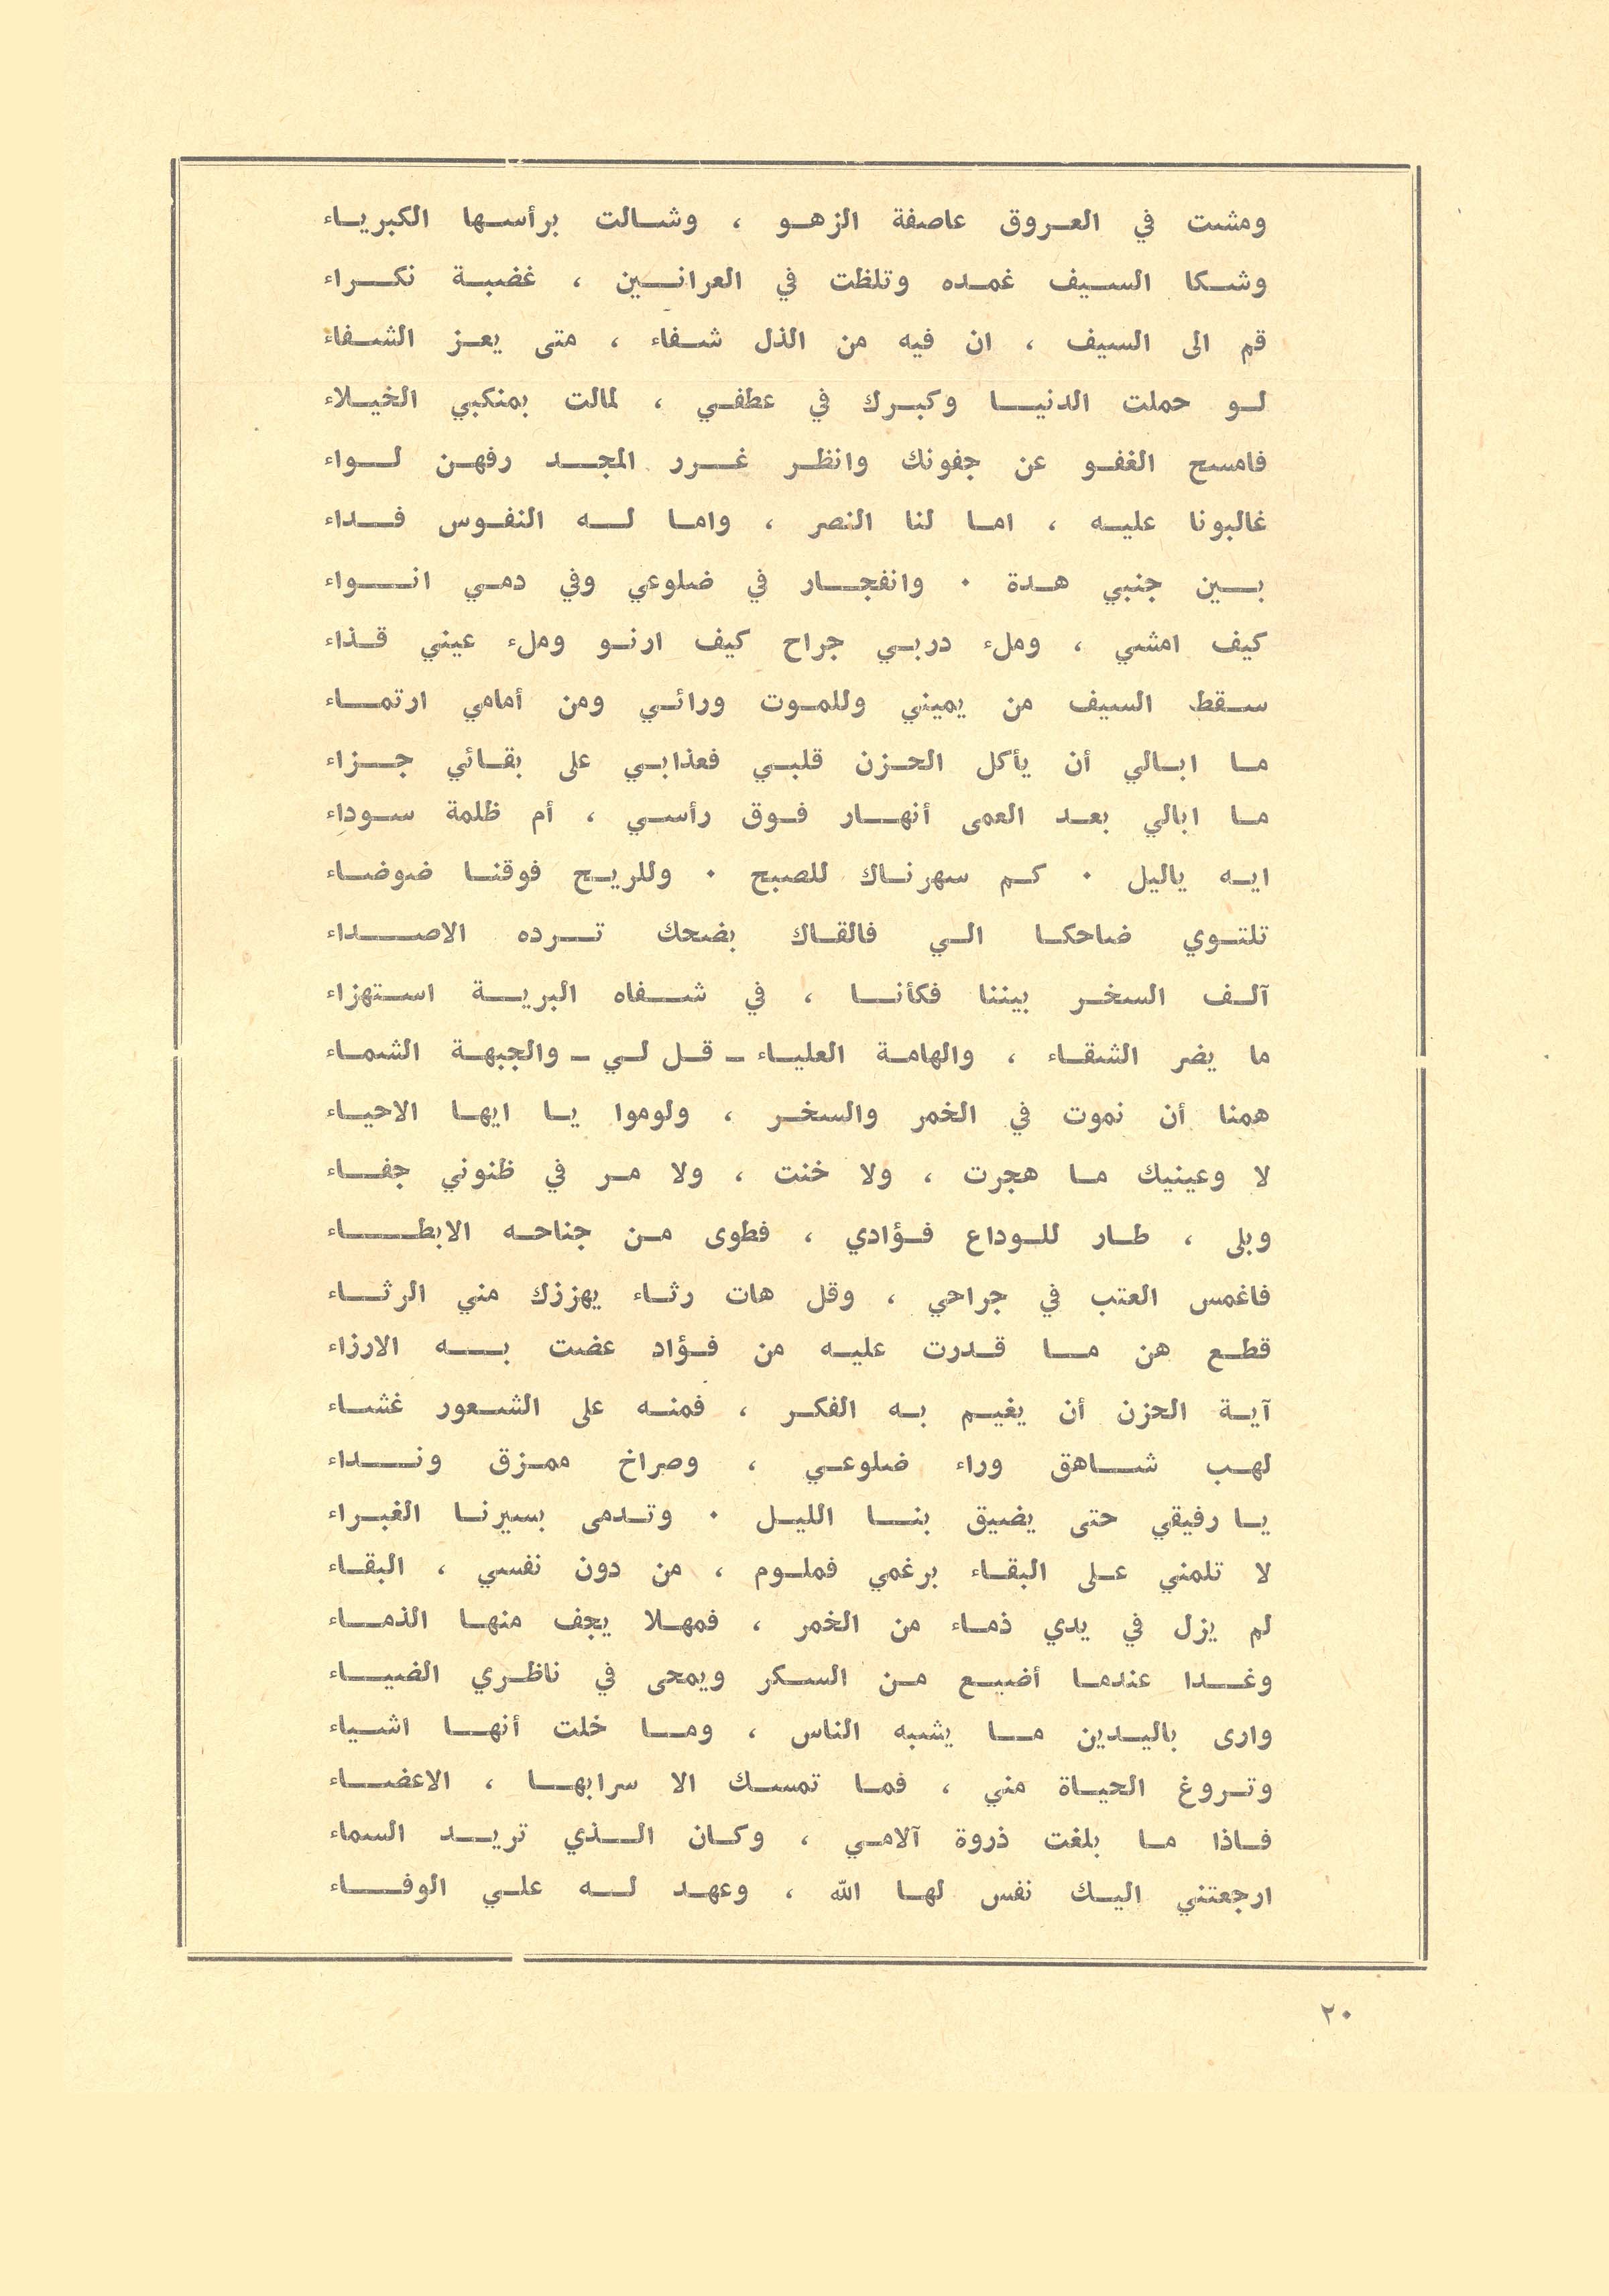 ومشت في العروق عاصفة الزهو ، وشالت برأسها الكبرياء
وشكا السيف غمده وتلظت في العرانين ، غضبة نكراء
قم الى السيف ، ان فيه من الذل شفاء ، متى يعز الشفاء
لو حملت الدنيا وكبرك في عطفي ، لمالت بمنكبي الخيلاء
فامسح الغفو عن جفونك وانظر غرر المجد رفهن لواء
غالبونا عليه ، اما لنا النصر ، واما له النفوس فداء
بين جنبي هدة . وانفجار في ضلوعي وفي دمي انواء
كيف امشي ، وملء دربي جراح كيف ارنو وملء عيني قذاء
سقط السيف من يميني وللموت ورائي ومن أمامي ارتماء
ما ابالي أن يأكل الحزن قلبي فعذابي على بقائي جزاء
ما ابالي بعد العمى أنهار فوق رأسي ، أم ظلمة سوداء
ايه ياليل . كم سهرناك للصبح . وللريح فوقنا ضوضاء
تلتوي ضاحكا الي فالقاك بضحك ترده الاصداء
آلف السخر بيننا فكأنا ، في شفاه البرية استهزاء
ما يضر الشقاء ، والهامة العلياء ـ قل لي ـ والجبهة الشماء
همنا أن نموت في الخمر والسخر ، ولوموا يا ايها الاحياء
لا وعينيك ما هجرت ، ولا خنت ، ولا مر في ظنوني جفاء
وبلى ، طار للوداع فؤادي ، فطوى من جناحه الابطاء
فاغمس العتب في جراحي ، وقل هات رثاء يهززك مني الرثاء
قطع هن ما قدرت عليه من فؤاد عضت به الارزاء
آية الحزن أن يغيم به الفكر ، فمنه على الشعور غشاء
لهب شاهق وراء ضلوعي ، وصراخ ممزق ونداء
يا رفيقي حتى يضيق بنا الليل . وتدمى بسيرنا الغبراء
لا تلمني على البقاء برغمي فملوم ، من دون نفسي ، البقاء
لم يزل في يدي ذماء من الخمر ، فمهلا يجف منها الذماء
وغدا عندما أضيع من السكر ويمحى في ناظري الضياء
وارى باليدين ما يشبه الناس ، وما خلت أنها اشياء
وتروغ الحياة مني ، فما تمسك الا سرابها ، الاعضاء
فاذا ما بلغت ذروة آلامي ، وكان الذي تريد السماء
ارجعتني اليك نفس لها الله ، وعهد له علي الوفاء
٢٠